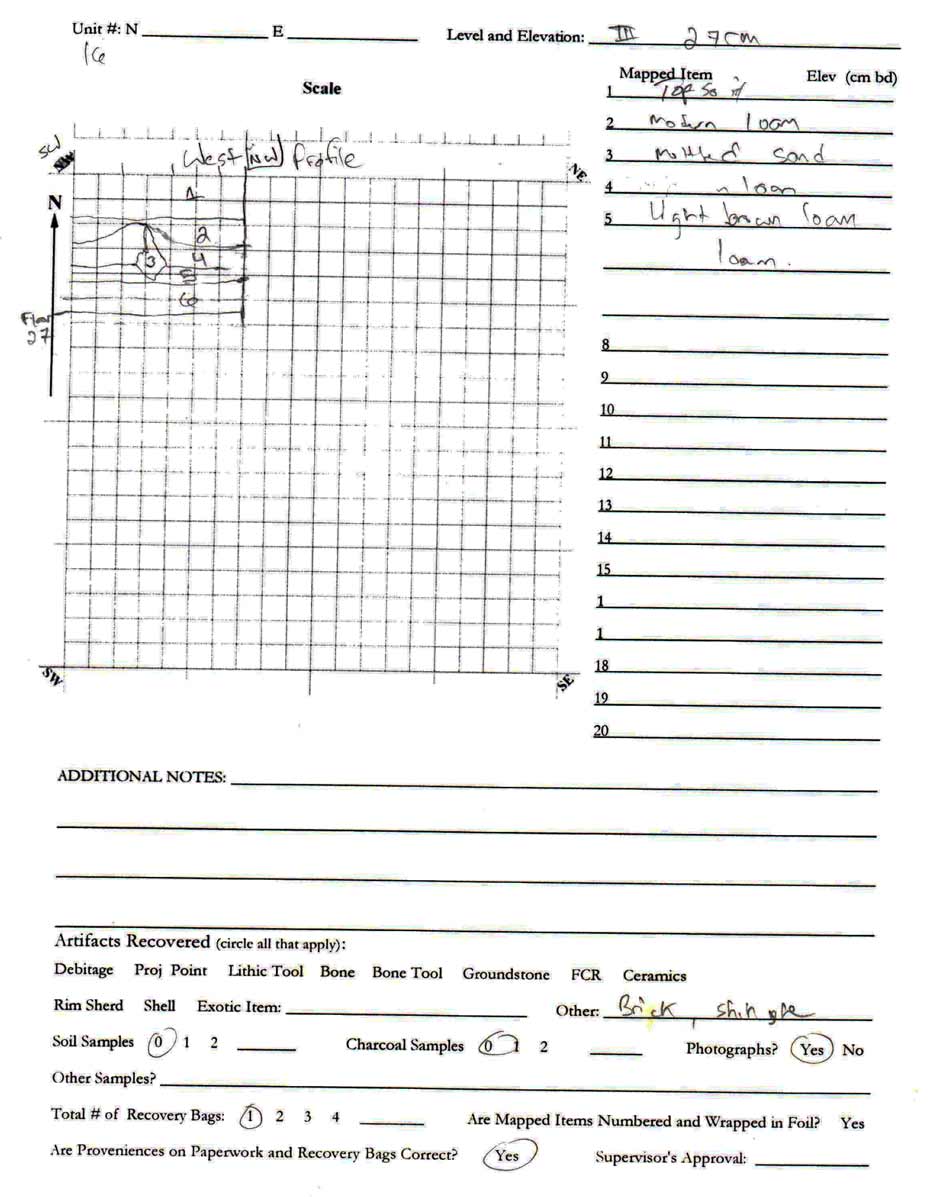 Unit #: N ____ E ____ Level and Elevation: III 27cm
16
Scale
Mapped Item Elev (cm bd)
1 Top soil
2 Modern loam
3 Mottled sand
4 loam
5 Light brown loam
loam.
8
9
10
11
12
13
14
15
1
1
18
19
20
SW
West NW Profile
NE
N
1
2
3
4
5
6
Floor
27
SW
SE
ADDITIONAL NOTES:
Artifacts Recovered (circle all that apply):
Debitage Proj Point Lithic Tool Bone Bone Tool Groundstone FCR Ceramics
Rim Sherd Shell Exotic Item: ____ Other: Brick, shingle
Soil Samples 0 1 2 ____ Charcoal Samples 0 1 2 ____ Photographs? Yes No
Other Samples?
Total # of Recovery Bags: 1 2 3 4 ____ Are Mapped Items Numbered and Wrapped in Foil? Yes
Are Proveniences on Paperwork and Recovery Bags Correct? Yes Supervisor's Approval: ____